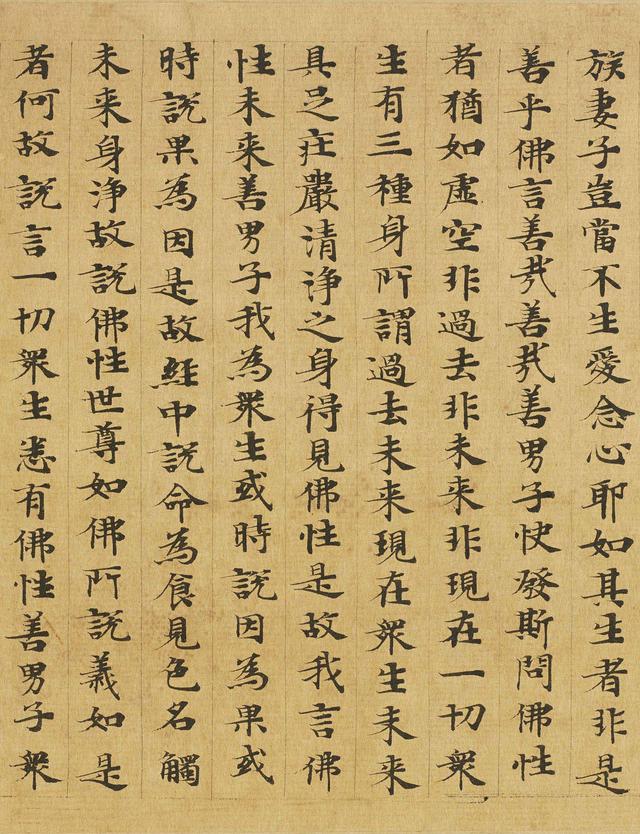 族妻子豈當不生愛念心耶如其生者非是
善乎佛言善哉善哉善男子快發斯問佛性
者猶如虛空非過去非未来非現在一切衆
生有三種身所謂過去未来現在衆生未来
具足荘嚴清淨之身得見佛性是故我言佛
性未来善男子我為衆生或時說因為果或
時說果為因是故經中說命為食見色名觸
未来身淨故說佛性世尊如佛所說義如是
者何故說言一切衆生悉有佛性善男子衆